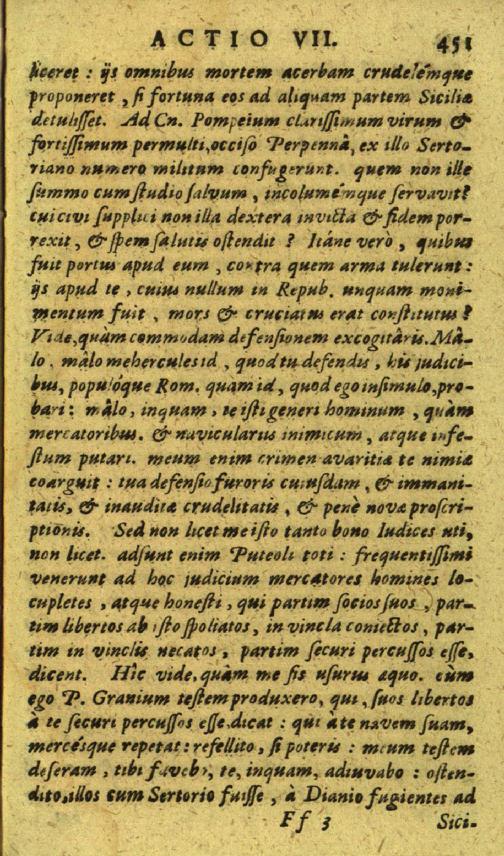 ACTIO VII. 451
liceret : ijs omnibus mortem acerbam crudelémque
proponeret , si fortuna eos ad aliquam partem Siciliæ
detulisset. Ad Cn. Pompeium clarissimum virum &
fortissimum permulti, occiso Perpennâ, ex illo Serto-
riano numero militum confugerunt. quem non ille
summo cum studio salvum , incolumémque servavit?
cui civi supplici non illa dextera invicta & fidem por-
rexit , & spem salutis ostendit ? Itáne verò , quibus
fuit portus apud eum , contra quem arma tulerunt :
ijs apud te , cuius nullum in Repub. unquam moni-
mentum fuit , mors & cruciatus erat constitutus ?
Vide, quàm commodam defensionem excogitâris. Mâ-
lo , mâlo mehercules id , quod tu defendis , his judici-
bus, populóque Rom. quam id , quod ego insimulo, pro-
bari : mâlo , inquam , te isti generi hominum , quàm
mercatoribus. & naviculariis inimicum , atque infe-
stum putari. meum enim crimen avaritiæ te nimiæ
coarguit : tua defensio furoris cuiusdam , & immani-
tatis, & inauditæ crudelitatis , & penè novæ proscri-
ptionis. Sed non licet me isto tanto bono Iudices uti,
non licet. adsunt enim Puteoli toti : frequentissimi
venerunt ad hoc judicium mercatores homines lo-
cupletes , atque honesti , qui partim socios suos , par-
tim libertos ab isto spoliatos , in vincla coniectos , par-
tim in vinclis necatos , partim securi percussos esse,
dicent. Hîc vide, quàm me sis usurus æquo. cùm
ego P. Granium testem produxero, qui , suos libertos
à te securi percussos esse, dicat : qui à te navem suam,
mercésque repetat : refellito, si poteris : meum testem
deseram , tibi favebo, te, inquam, adiuvabo : osten-
dito, illos cum Sertorio fuisse , à Dianio fugientes ad
Ff 3 Sici-